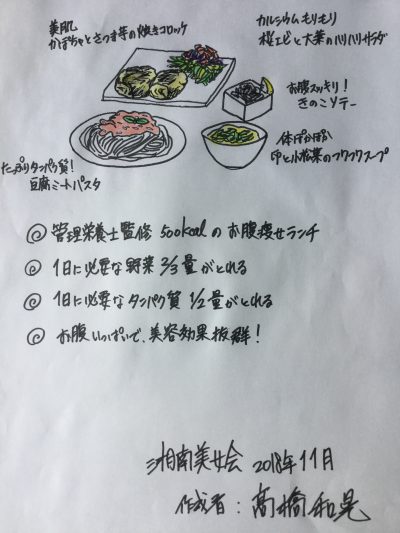 美肌
かぼちゃとさつま芋の焼きコロッケ
カルシウムもりもり
桜エビと大葉のハリハリサラダ
お腹スッキリ!
きのこソテー
たっぷりタンパク質!
豆腐ミートパスタ
体ぽかぽか
卵と小松菜のフワフワスープ
◎ 管理栄養士監修 500kcalのお腹痩せランチ
◎ 1日に必要な野菜 2/3量がとれる
◎ 1日に必要なタンパク質 1/2量がとれる
◎ お腹いっぱいで、美容効果抜群!
湘南美女会 2018年11月
作成者:髙橋和晃